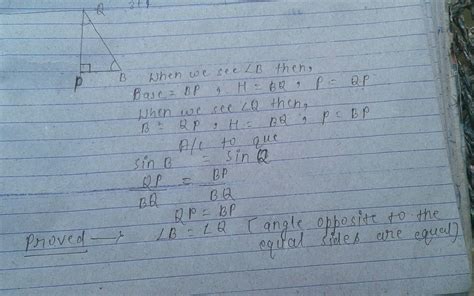 Q
P B
When we see ∠B then,
Base = BP , H = BQ , P = QP
When we see ∠Q then,
B = QP , H = BQ , P = BP
A/c to que
Sin B = Sin Q
QP = BP
BQ BQ
QP = BP
Proved → ∠B = ∠Q [angle opposite to the
equal sides are equal]